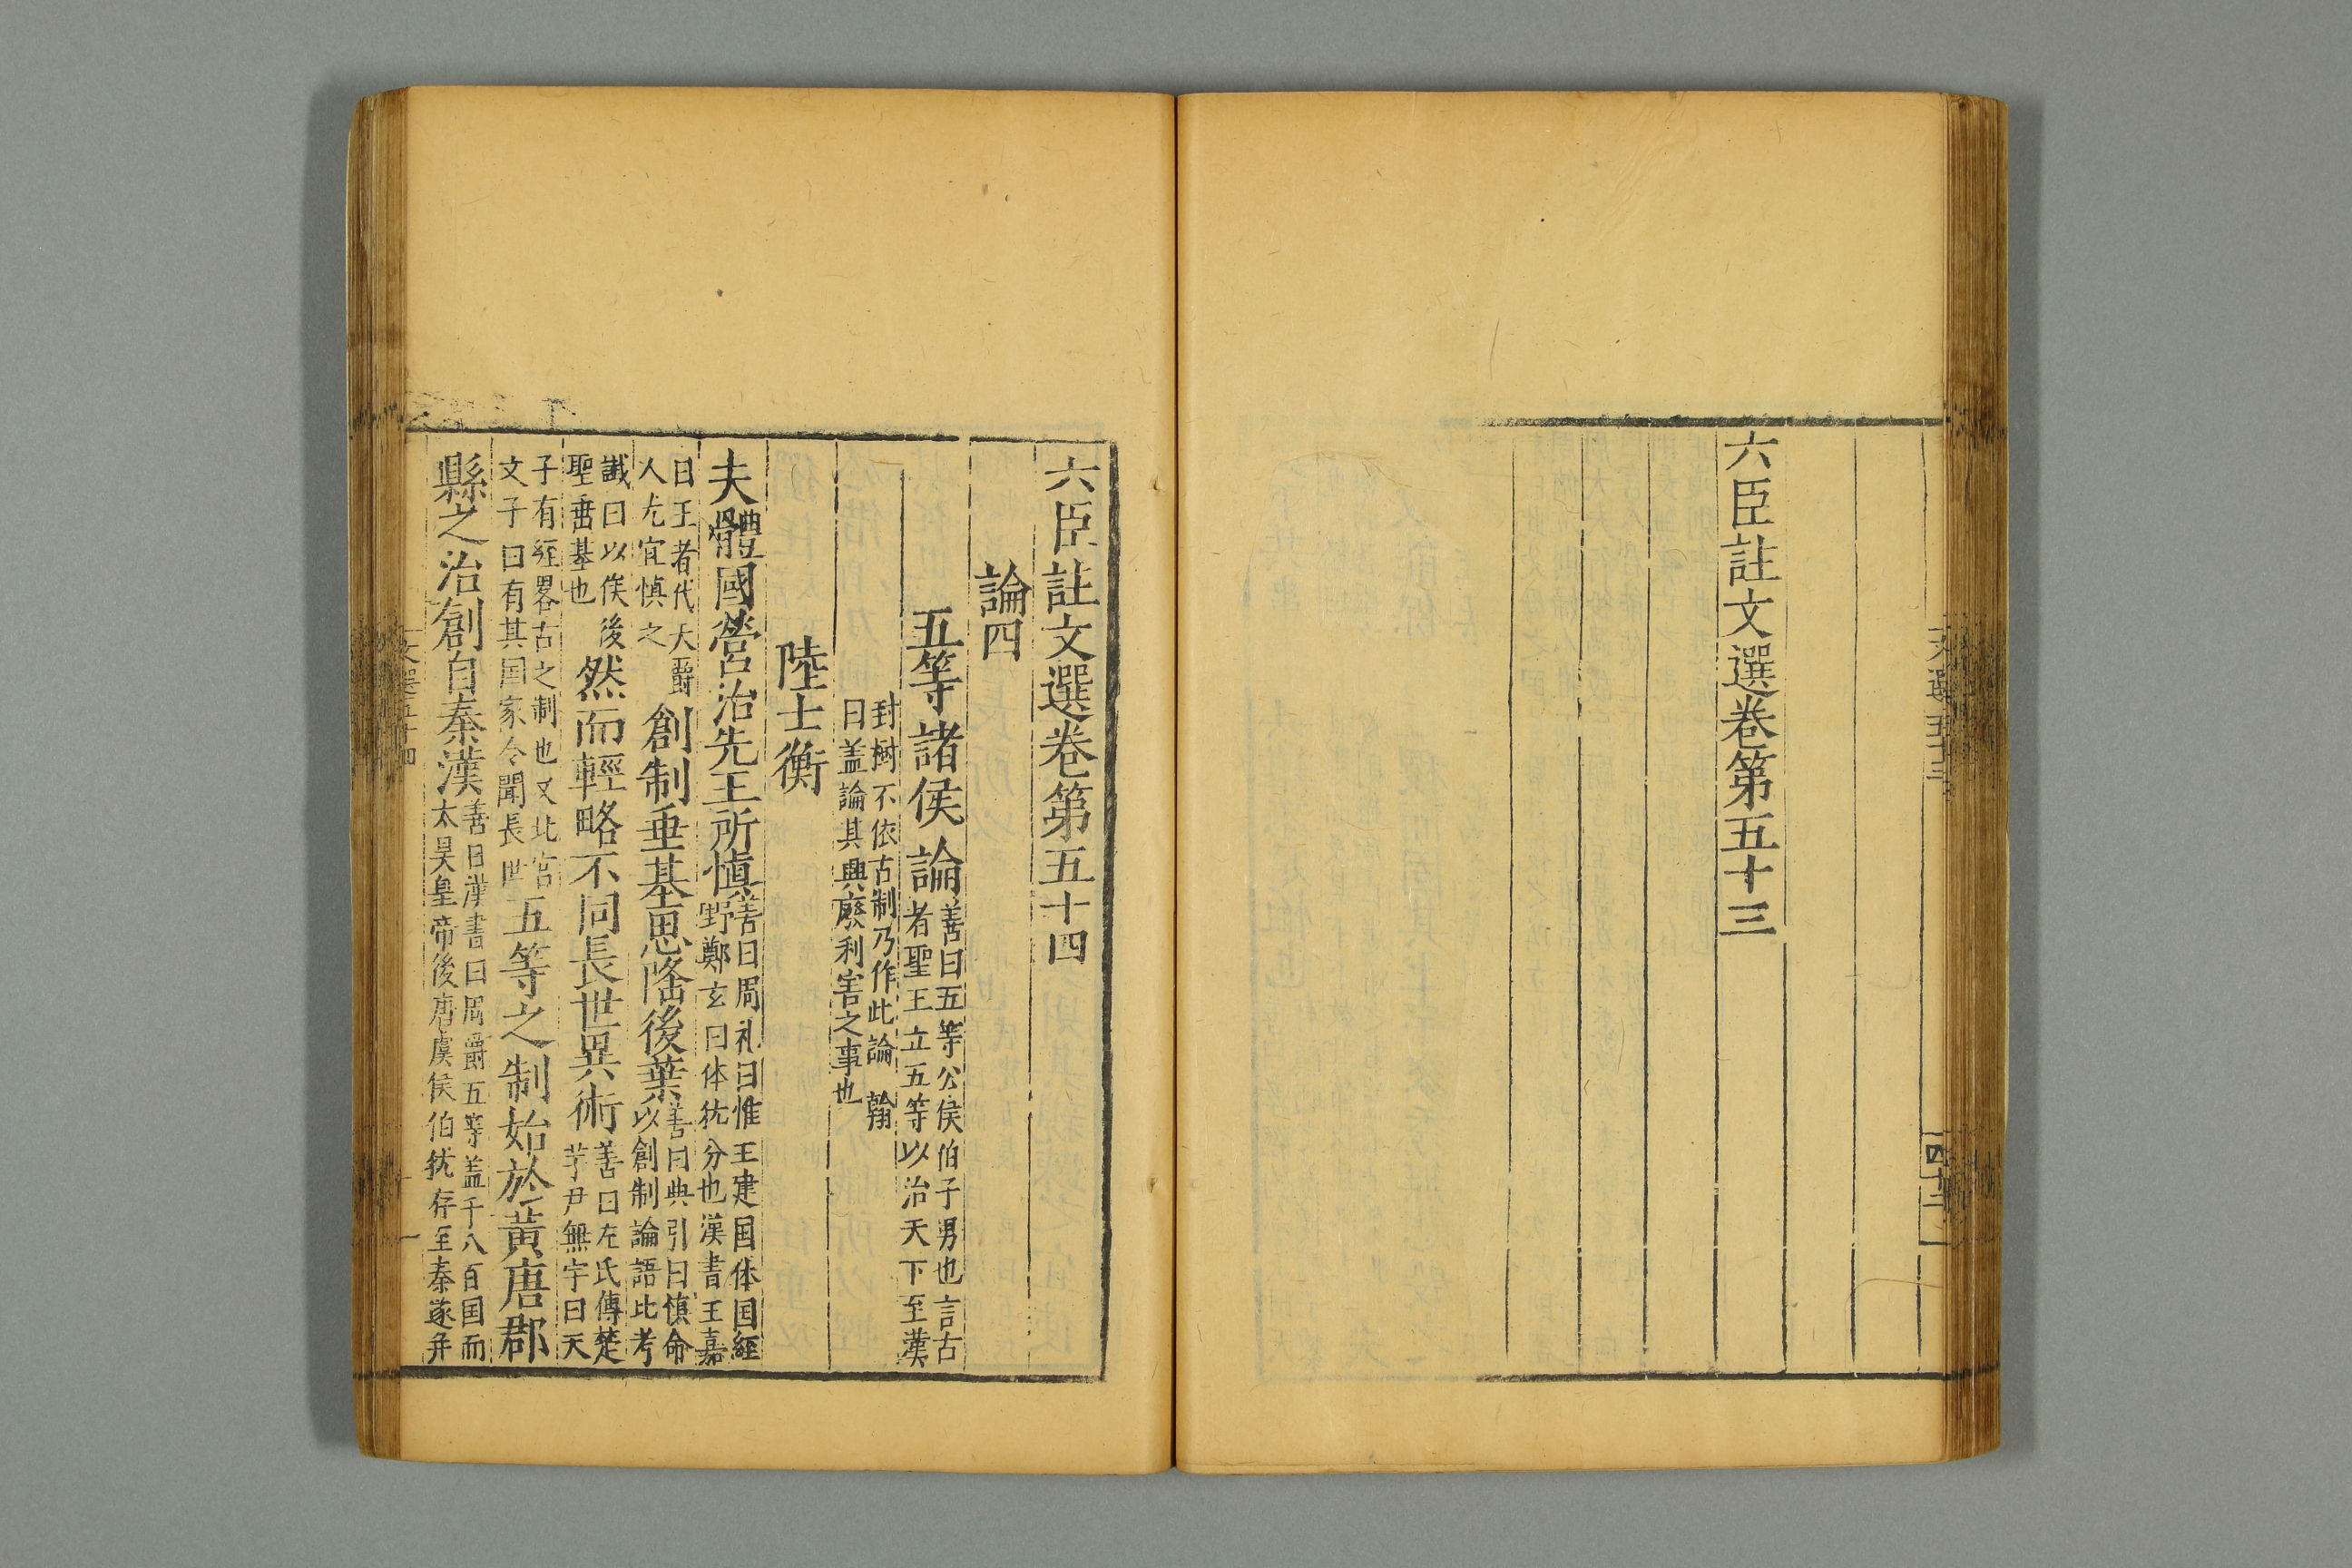 六臣註文選卷第五十三
六臣註文選卷第五十四
論四
五等諸侯論善曰五等公侯伯子男也言古
者聖王立五等以治天下至漢
封樹不依古制乃作此論　翰
曰盖論其興廢利害之事也
陸士衡
夫體國營治先王所慎善曰周礼曰惟王建国体国經
野鄭玄曰体犹分也漢書王嘉
曰王者代天爵
人尤宜慎之
創制垂基思隆後葉善曰典引曰慎命
以創制論語比考
讖曰以俟後
聖垂基也
然而輕略不同長世異術善曰左氏傳楚
芋尹無宇曰天
子有經畧古之制也又北宫
文子曰有其国家令聞長世
五等之制始於黃唐郡
縣之治創自秦漢善曰漢書曰周爵五等盖千八百国而
太昊皇帝後唐虞侯伯犹存至秦遂并